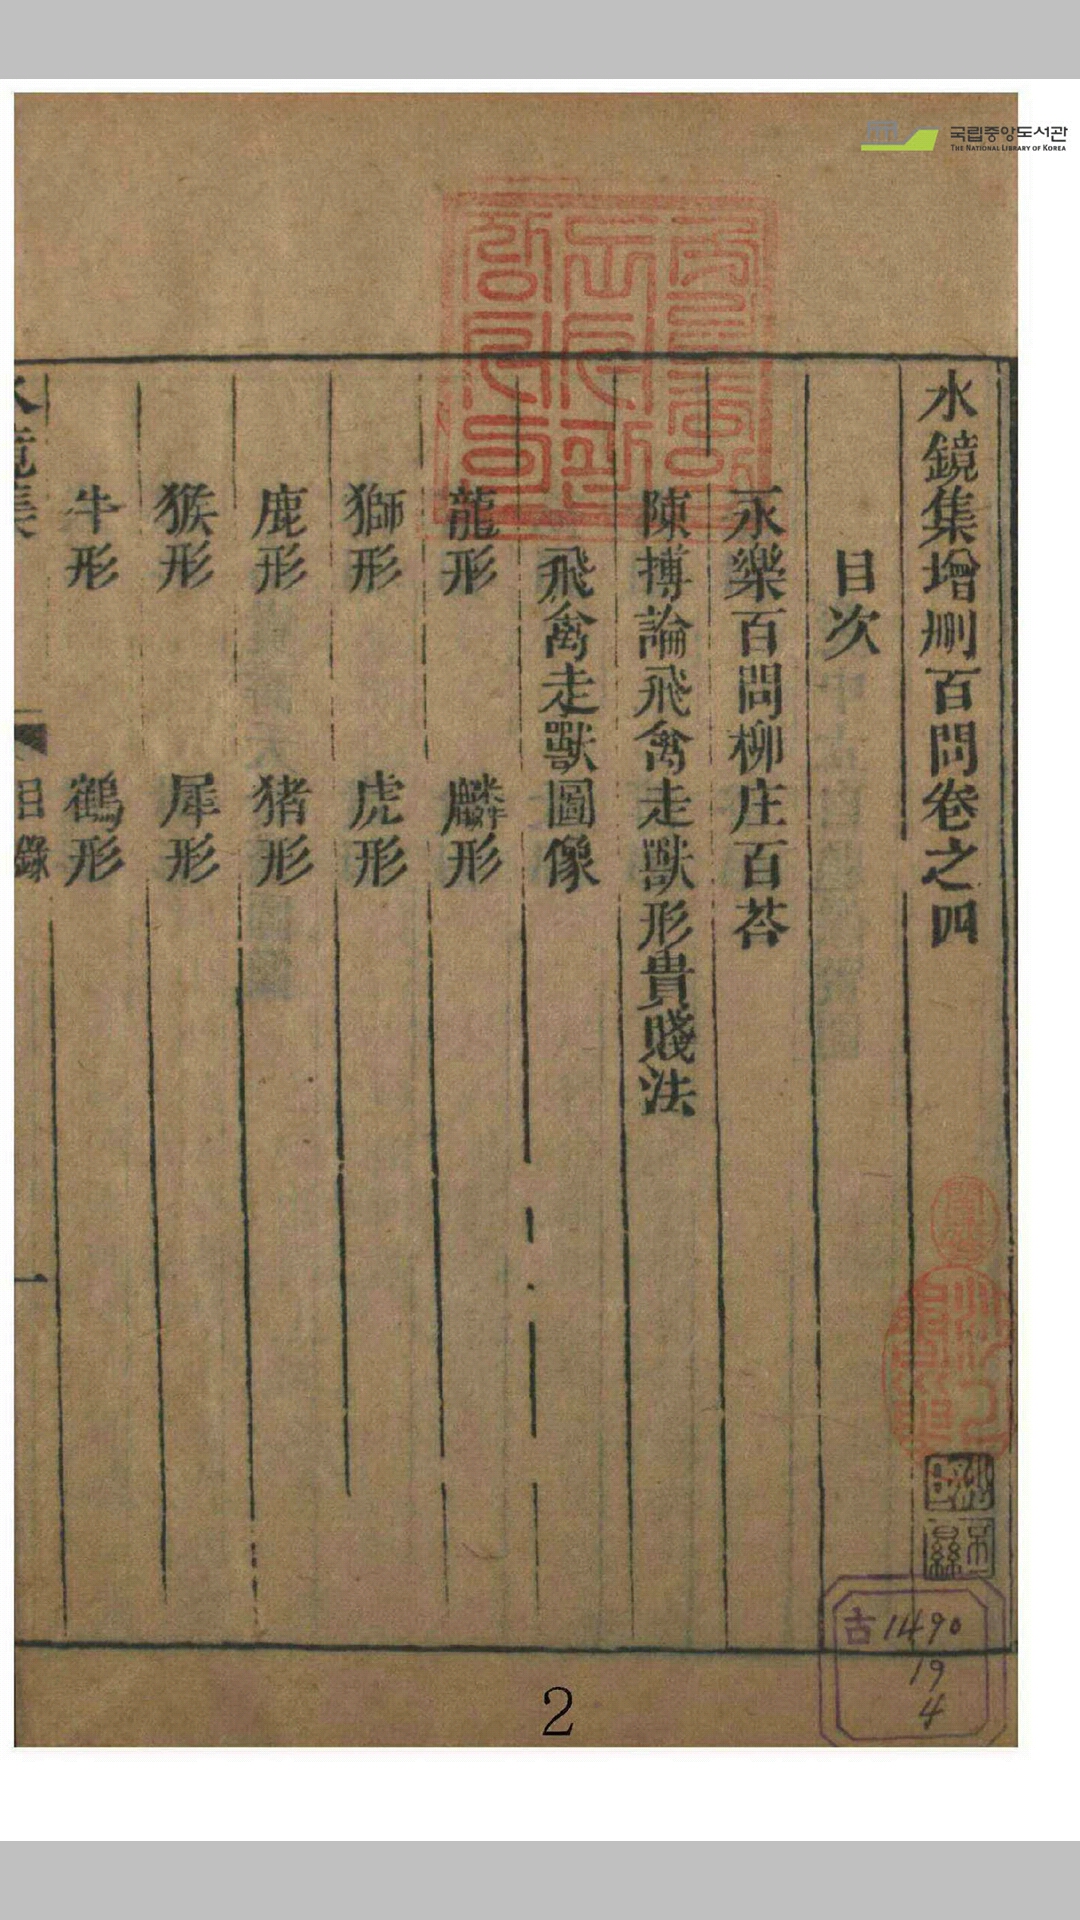 국립중앙도서관
THE NATIONAL LIBRARY OF KOREA
水鏡集增刪百問卷之四
目次
永樂百問柳庄百荅
陳摶論飛禽走獸形貴賤法
飛禽走獸圖像
龍形　麟形
獅形　虎形
鹿形　猪形
猴形　犀形
牛形　鶴形
水鏡集　目錄　一
古1490
19
4
2